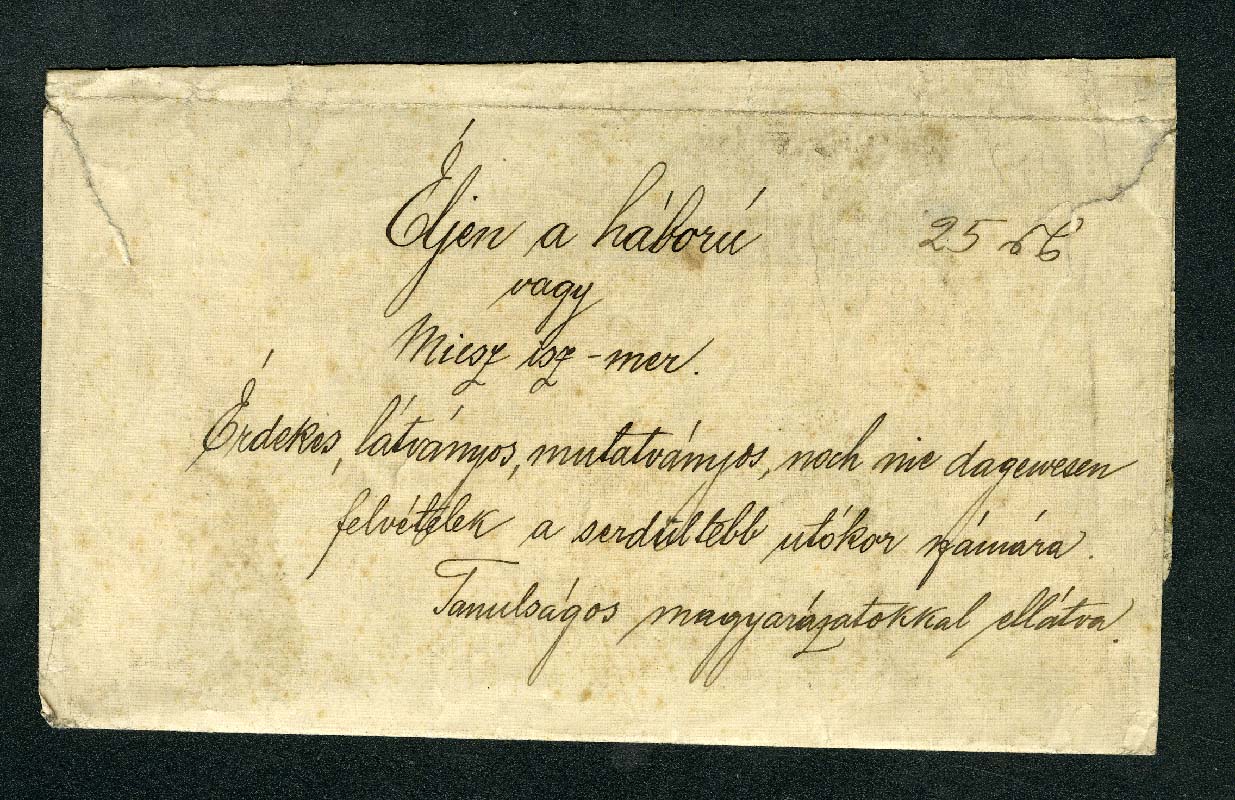 Éljen a háború
25
vagy
Miesz isz-mer.
Érdekes, látványos, mutatványos, noch nie dagewesen
felvételek a serdültebb utókor számára.
Tanulságos magyarázatokkal ellátva.